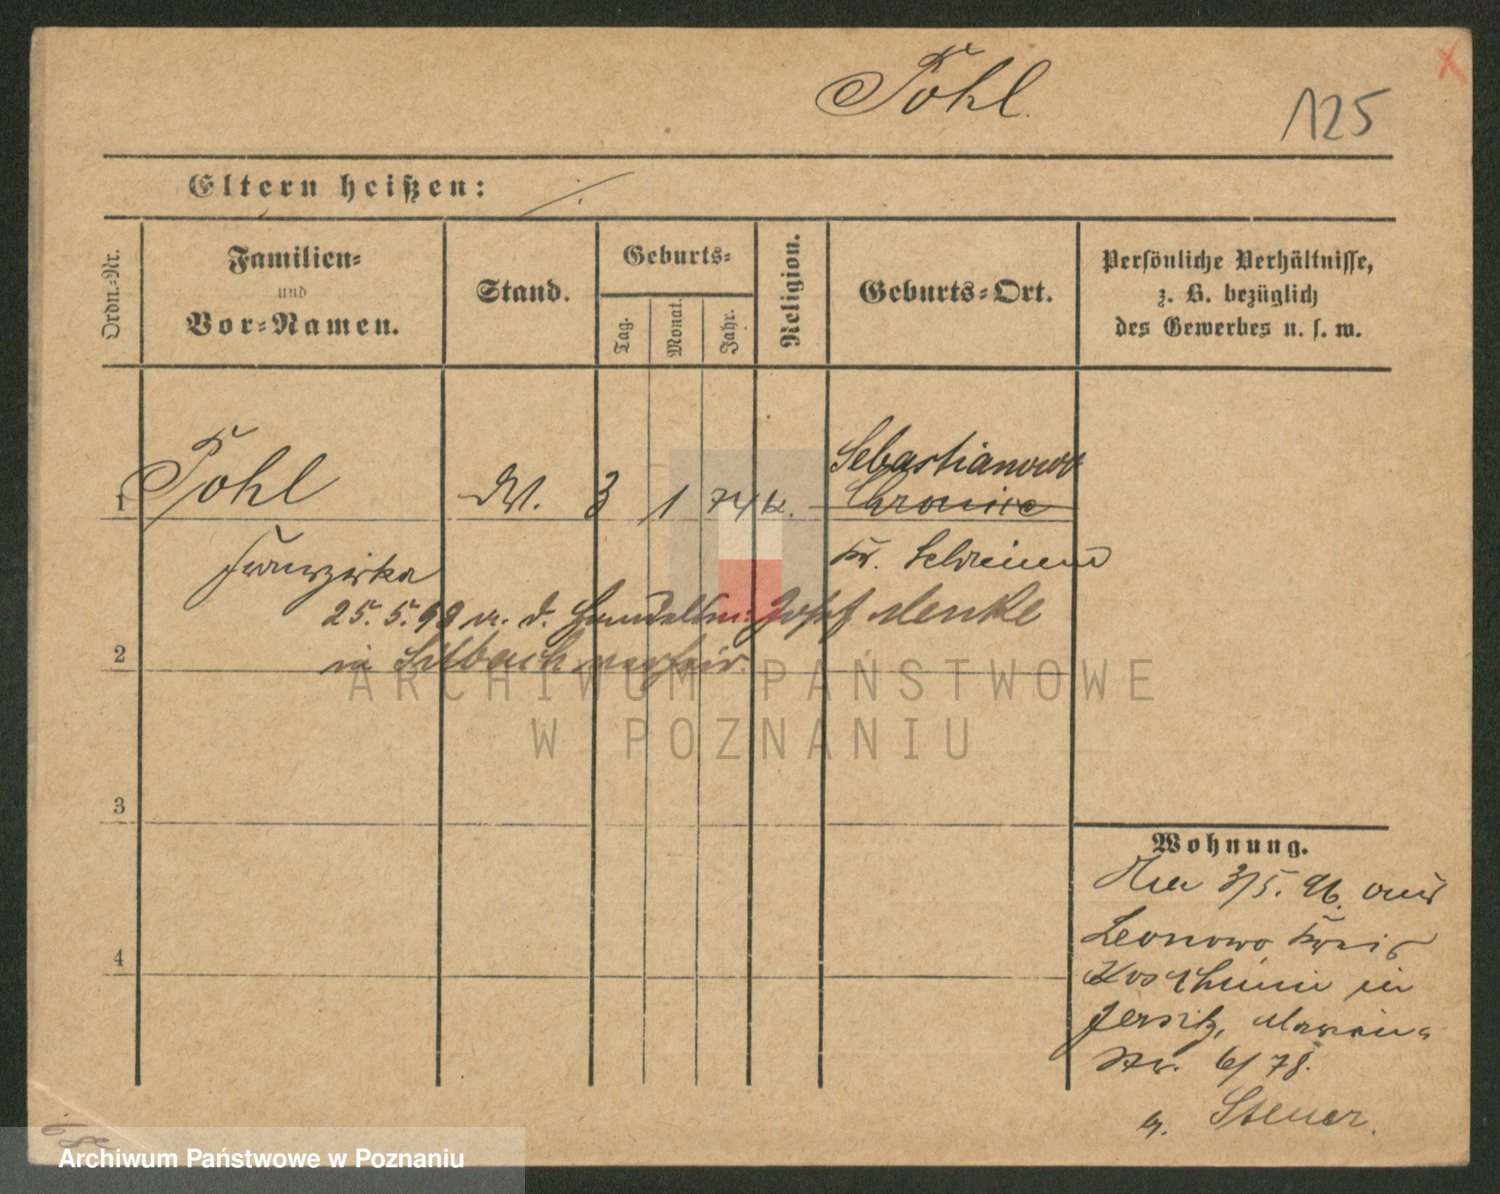 Pohl.
125
Eltern heißen: ./.
Ordn.-Nr.
Familien-
und
Vor-Namen.
Stand.
Geburts-
Tag.
Monat.
Jahr.
Religion.
Geburts-Ort.
Persönliche Verhältnisse,
z. B. bezüglich
des Gewerbes u. s. w.
Sebastianowo
1 Pohl 3 1 74 k.
Franziska Kr. Schrimm
25. 5. 99 m. d. Josef Menke
2 in Silbach verheir.
3
4
Wohnung.
3/5. 96. aus
Leonowo Kreis
Koschmin in
Jersitz, Marien-
Str. 6/78.
Steuer.
ARCHIWUM PAŃSTWOWE
W POZNANIU
Archiwum Państwowe w Poznaniu